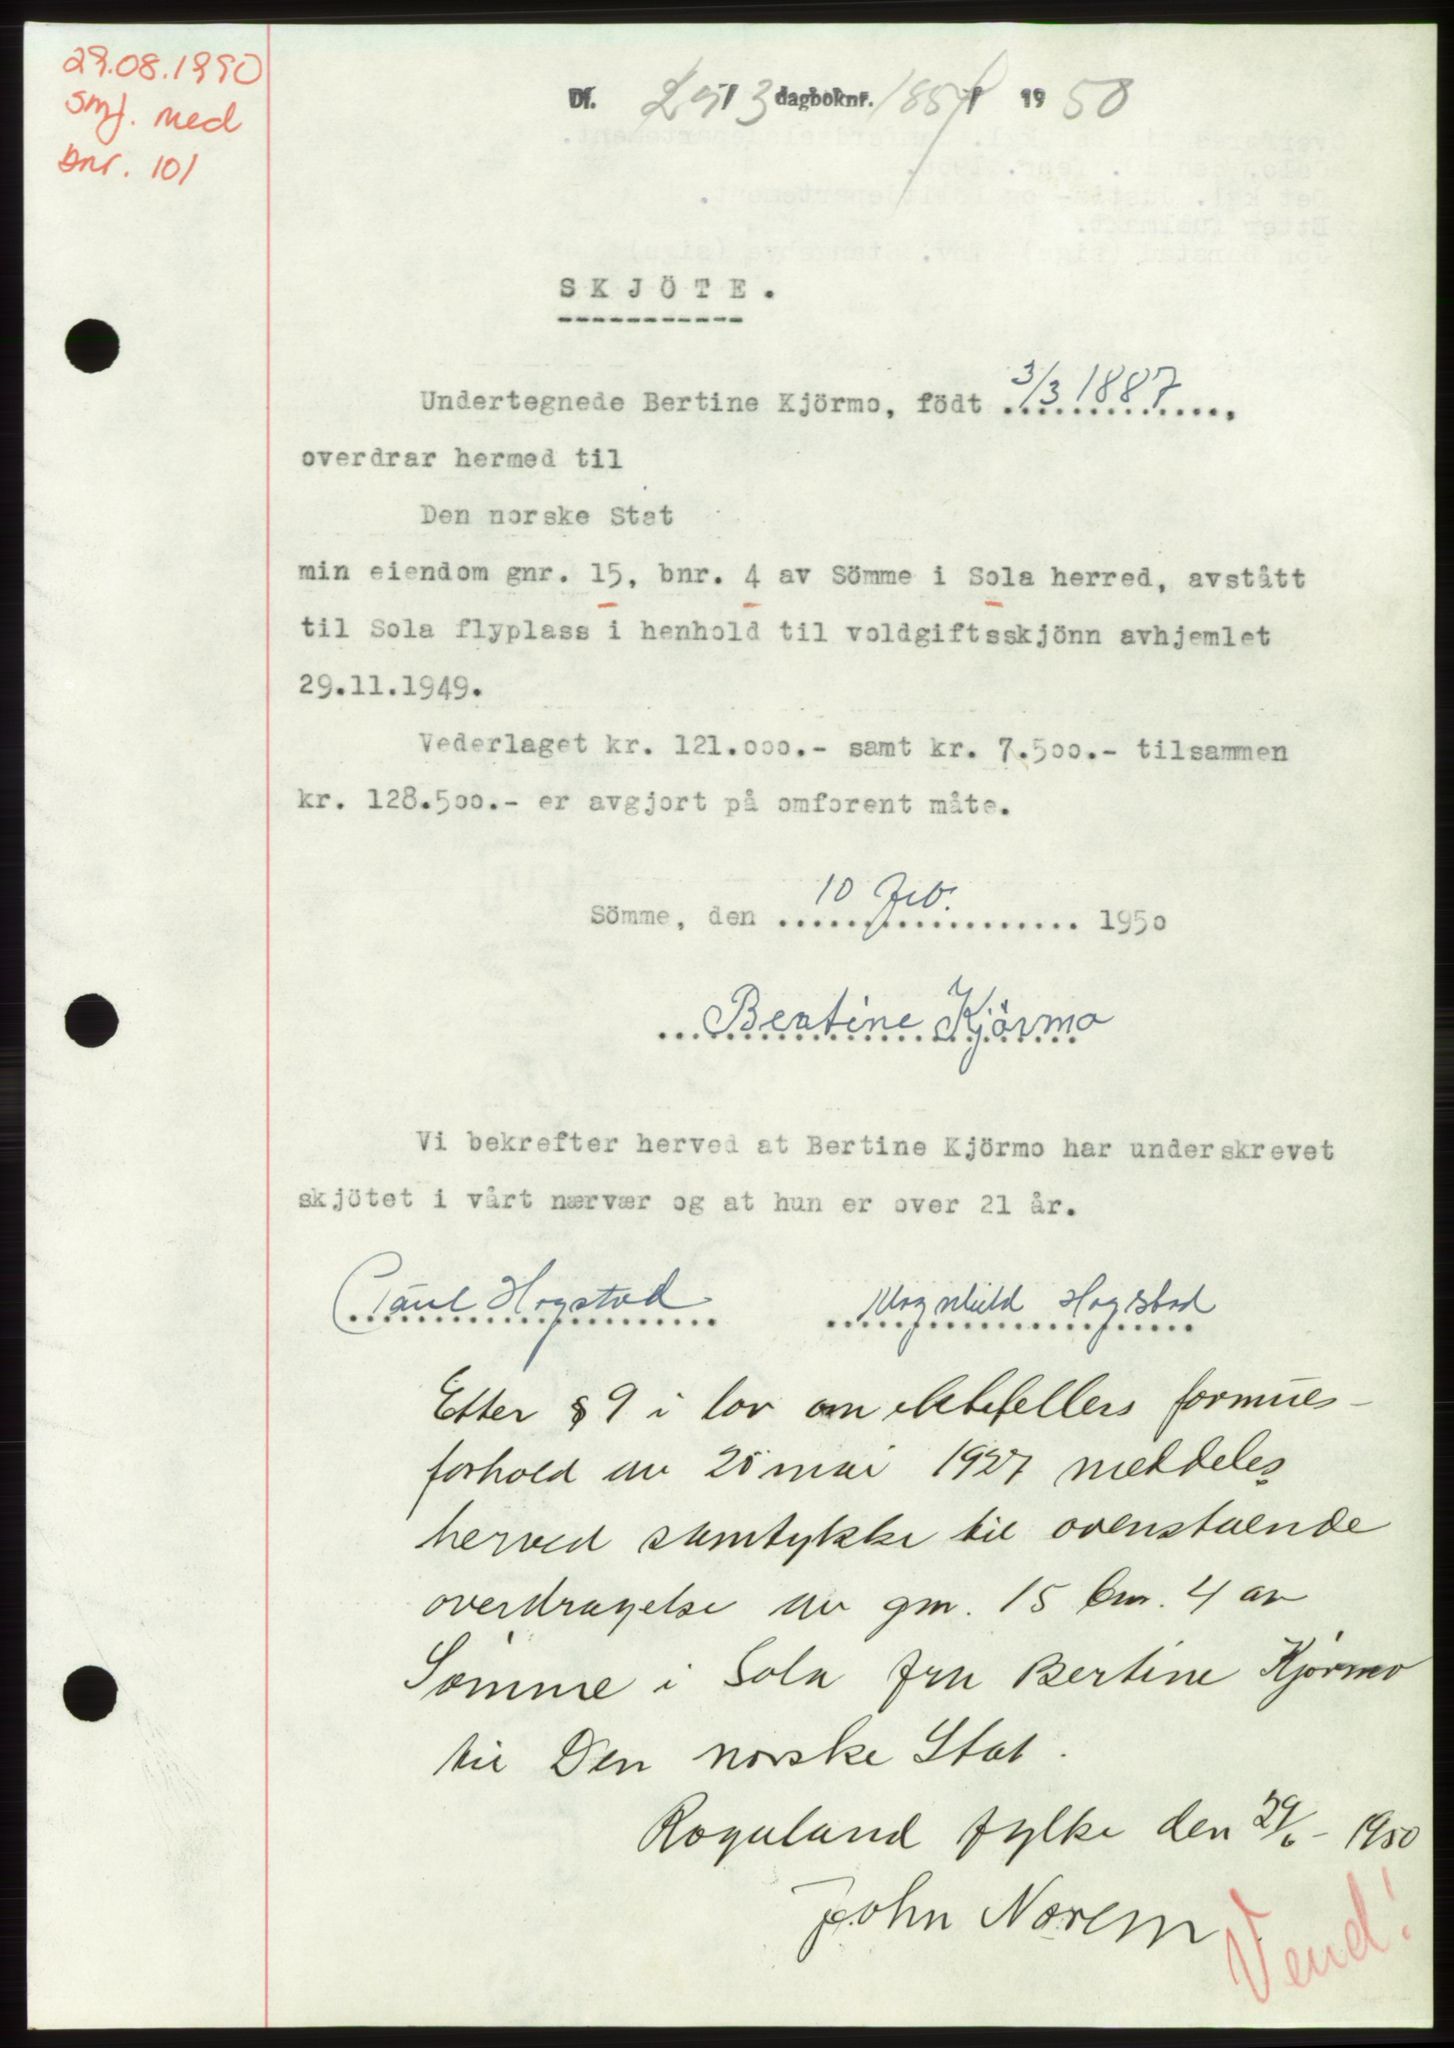 29.08.1990
smf. med
bnr. 101
Df. dagboknr. 1950
SKJÖTE.
Undertegnede Bertine Kjörmo, födt 3/3 1887,
overdrar hermed til
Den norske Stat
min eiendom gnr. 15, bnr. 4 av Sömme i Sola herred, avstått
til Sola flyplass i henhold til voldgiftsskjönn avhjemlet
29.11.1949.
Vederlaget kr. 121.000.- samt kr. 7.500.- tilsammen
kr. 128.500.- er avgjort på omforent måte.
Sömme, den 10 Feb. 1950
Bertine Kjörmo
Vi bekrefter herved at Bertine Kjörmo har underskrevet
skjötet i vårt nærvær og at hun er over 21 år.
Paul Hogstad Magnhild Hogstad
Etter § 9 i lov om ektefellers formues-
forhold av 20 mai 1927 meddeles
herved samtykke til ovenstående
overdragelse av gnr. 15 bnr. 4 av
Sömme i Sola fra Bertine Kjörmo
til Den norske Stat.
Rogaland fylke den 29/6 - 1950
John Norem
Vend!